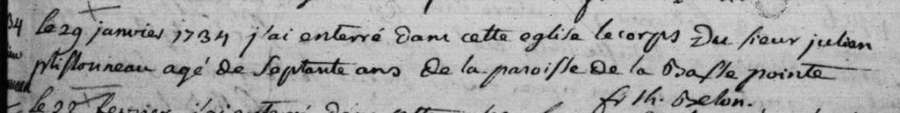 34 le 29 janvier 1734 j'ai enterré dans cette eglise le corps Du sieur julien
agé de Septante ans de la paroisse de la Basse pointe
fr th. Belon.
le 28 fevrier j'ai enterré